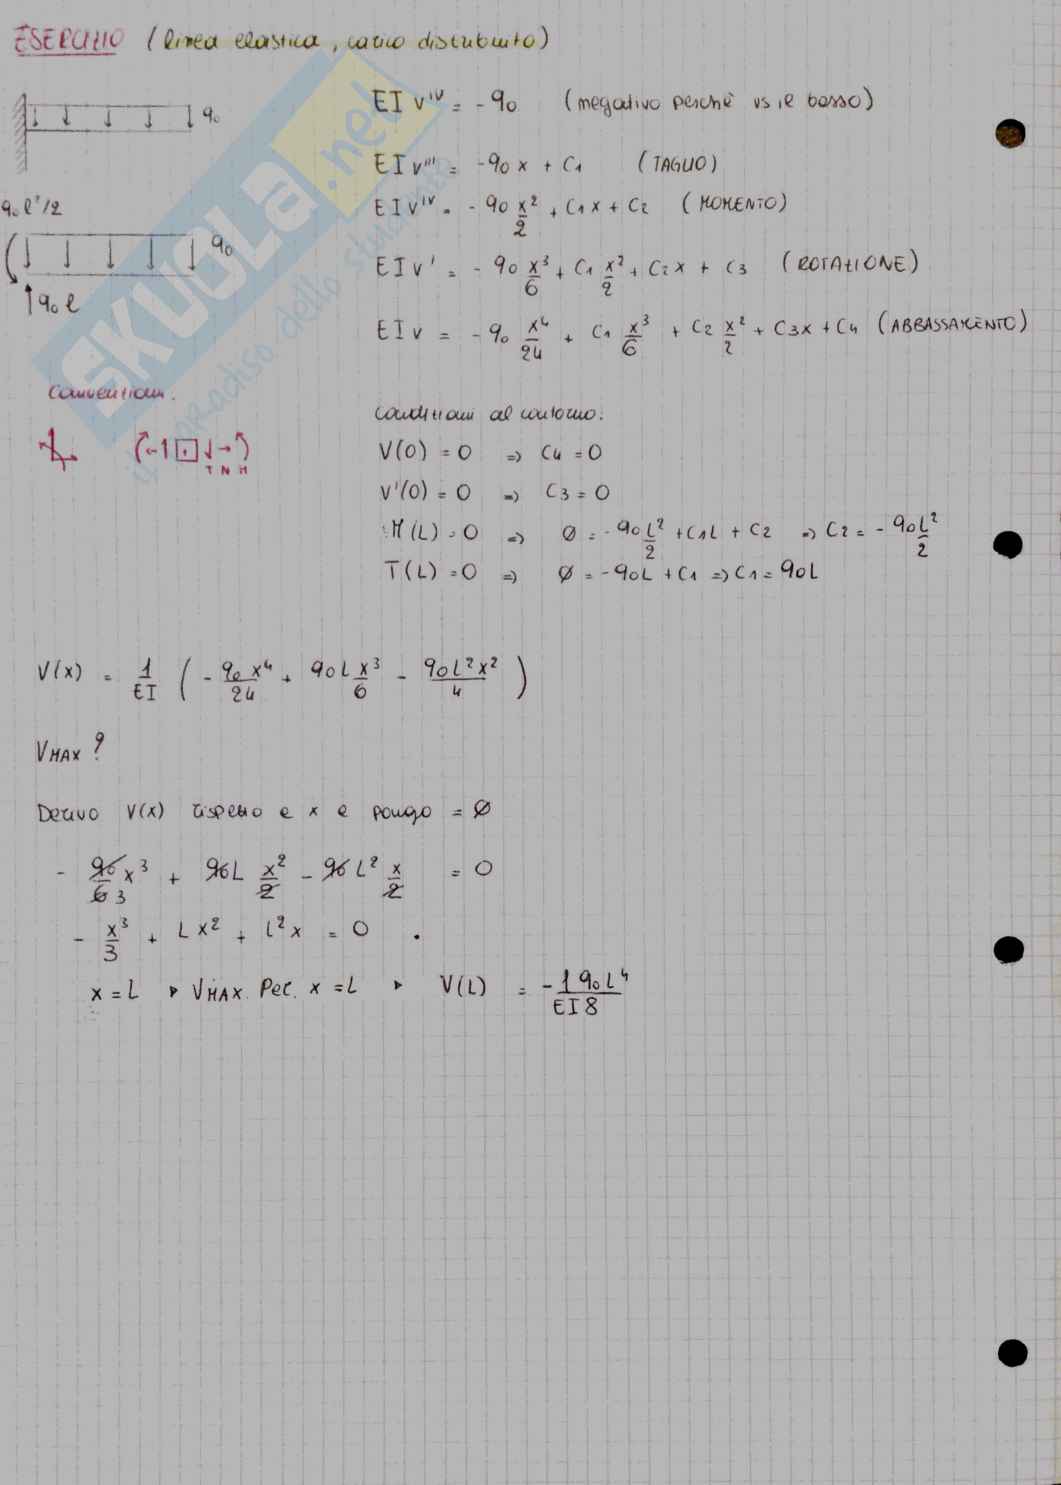 ESERCIZIO (linea elastica, carico distribuito)
q₀
EI vᴵⱽ = -q₀ (negativo perché vs il basso)
EI v''' = -q₀ x + C₁ (TAGLIO)
EI vᴵⱽ = -q₀ x²/2 + C₁x + C₂ (MOMENTO)
q₀ l²/2
q₀
q₀ l
EI v' = - q₀ x³/6 + C₁ x²/2 + C₂x + C₃ (ROTAZIONE)
EI v = - q₀ x⁴/24 + C₁ x³/6 + C₂ x²/2 + C₃x + C₄ (ABBASSAMENTO)
Convenzioni:
T N M
Condizioni al contorno:
V(0) = 0 => C₄ = 0
v'(0) = 0 => C₃ = 0
M(L) = 0 => 0 = - q₀L²/2 + C₁L + C₂ => C₂ = - q₀L²/2
T(L) = 0 => 0 = -q₀L + C₁ => C₁ = q₀L
V(x) = 1/EI ( - q₀x⁴/24 + q₀L x³/6 - q₀L²x²/4 )
VMAX ?
Derivo V(x) rispetto a x e pongo = 0
- q₀/6 3 x³ + q₀L x²/2 - q₀L² x/2 = 0
- x³/3 + Lx² + L²x = 0
x = L ▸ VMAX. Per. x = L ▸ V(L) = -1 q₀L⁴/EI 8
SKUOLA.net
il paradiso dello studente